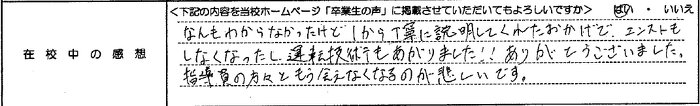 <下記の内容を当校ホームページ「卒業生の声」に掲載させていただいてもよろしいですか> はい・いいえ
在校中の感想
なんもわからなかったけど1から丁寧に説明してくれたおかげで、エンストも
しなくなったし、運転技術もあがりました!!ありがとうございました。
指導員の方々ともう会えなくなるのが悲しいです。